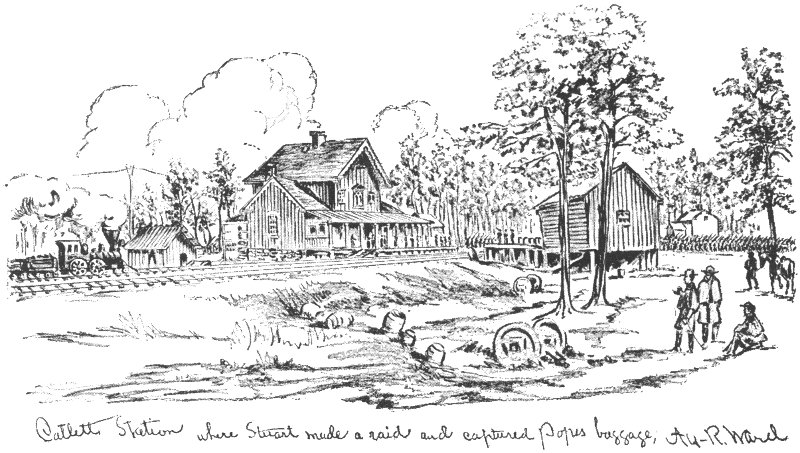 Catletts Station where Stuart made a raid and captured Popes baggage, A.y-R. Ward